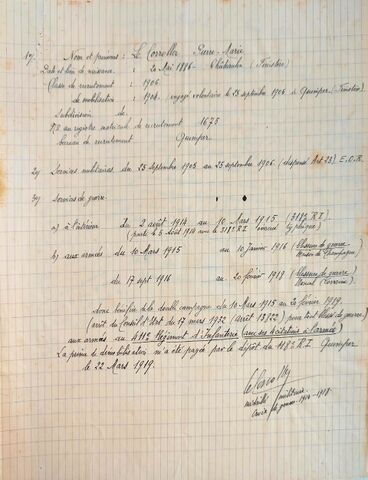 1°/ Nom et prénoms : Le Corroller Pierre-Marie
Date et lieu de naissance : 20 Mai 1886 - (Finistère)
Classe de recrutement : 1906
de mobilisation : 1904 (engagé volontaire le 23 septembre 1905 à Quimper (Finistère)
Subdivision de
N° au registre matricule de recrutement 1675
bureau de recrutement Quimper
2°/ Services militaires du 23 septembre 1905 au 23 septembre 1906 (dispensé Art 23)
3°/ Services de guerre
a) à l'intérieur Du 2 août 1914 au 10 Mars 1915 (318e R.I)
(parti le 5 Août 1914 avec le 318e R.I
b) aux armées du 10 Mars 1915 au 10 Janvier 1916 (blessure de guerre)
Champagne
du 17 sept 1916 au 20 février 1918 (blessure de guerre)
(Lorraine)
donc bénéficie de la double campagne du 10 Mars 1915 au 20 février 1919.
(arrêt du Conseil d'Etat du 17 mars 1922 pour tout blessé de guerre)
aux armées au 411e Régiment d'Infanterie (avec ses 2 citations à l'armée)
La prime de démobilisation m'a été payée par le dépôt du 118e R.I Quimper
le 22 Mars 1919.
médaille militaire
Croix de guerre 1914-1918